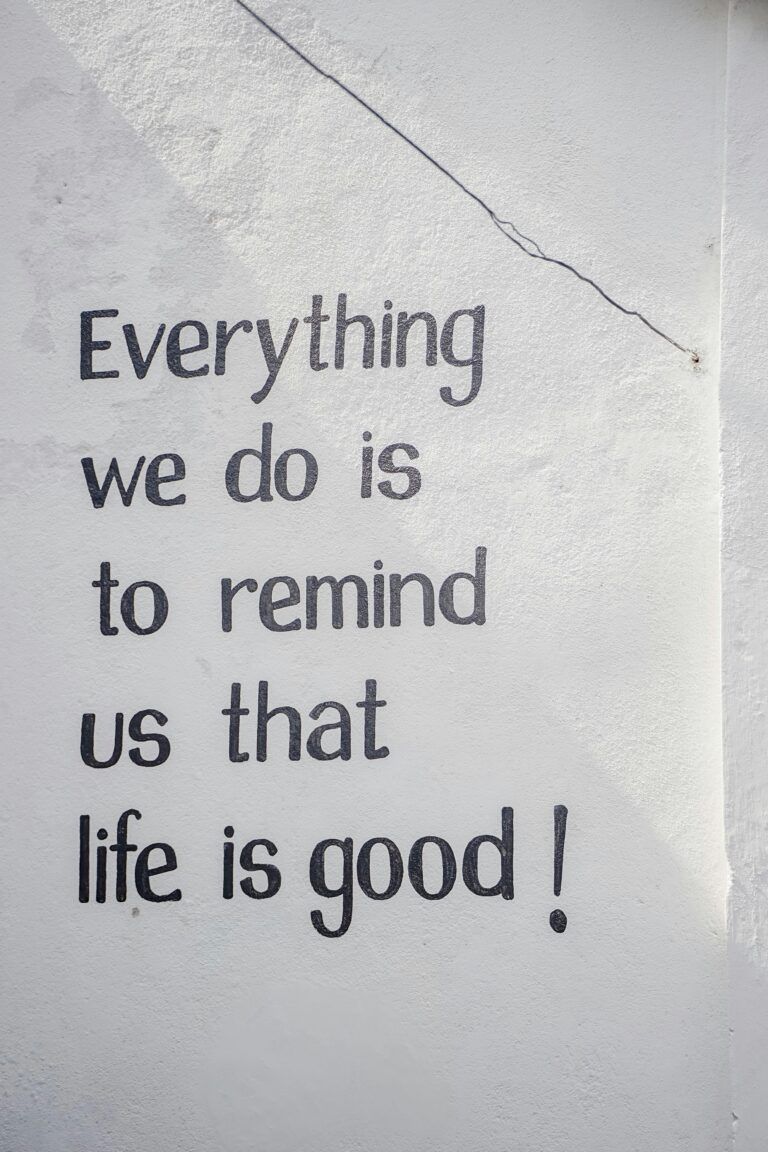 Everything
we do is
to remind
us that
life is good !